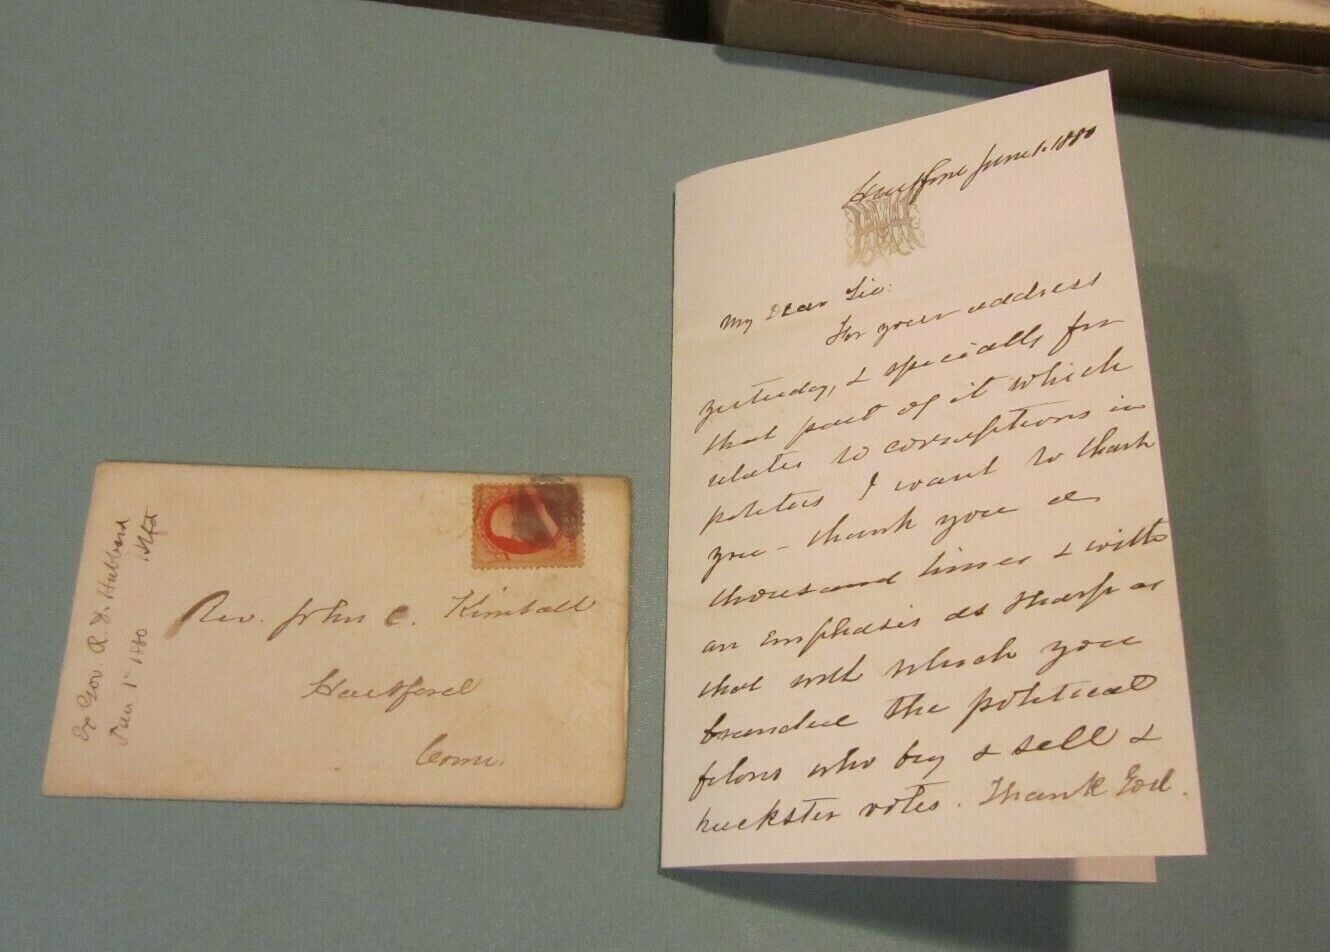 Ex Gov R. D. Hubbard
June 1st 1880 Htfd
Rev. John C. Kimball
Hartford
Conn.
Hartford June 1. 1880
My Dear Sir:
For your address
yesterday, & specially for
that part of it which
relates to corruptions in
politics I want to thank
you - thank you a
thousand times & with
an emphasis as sharp as
that with which you
branded the political
felons who buy & sell &
huckster votes. Thank God.